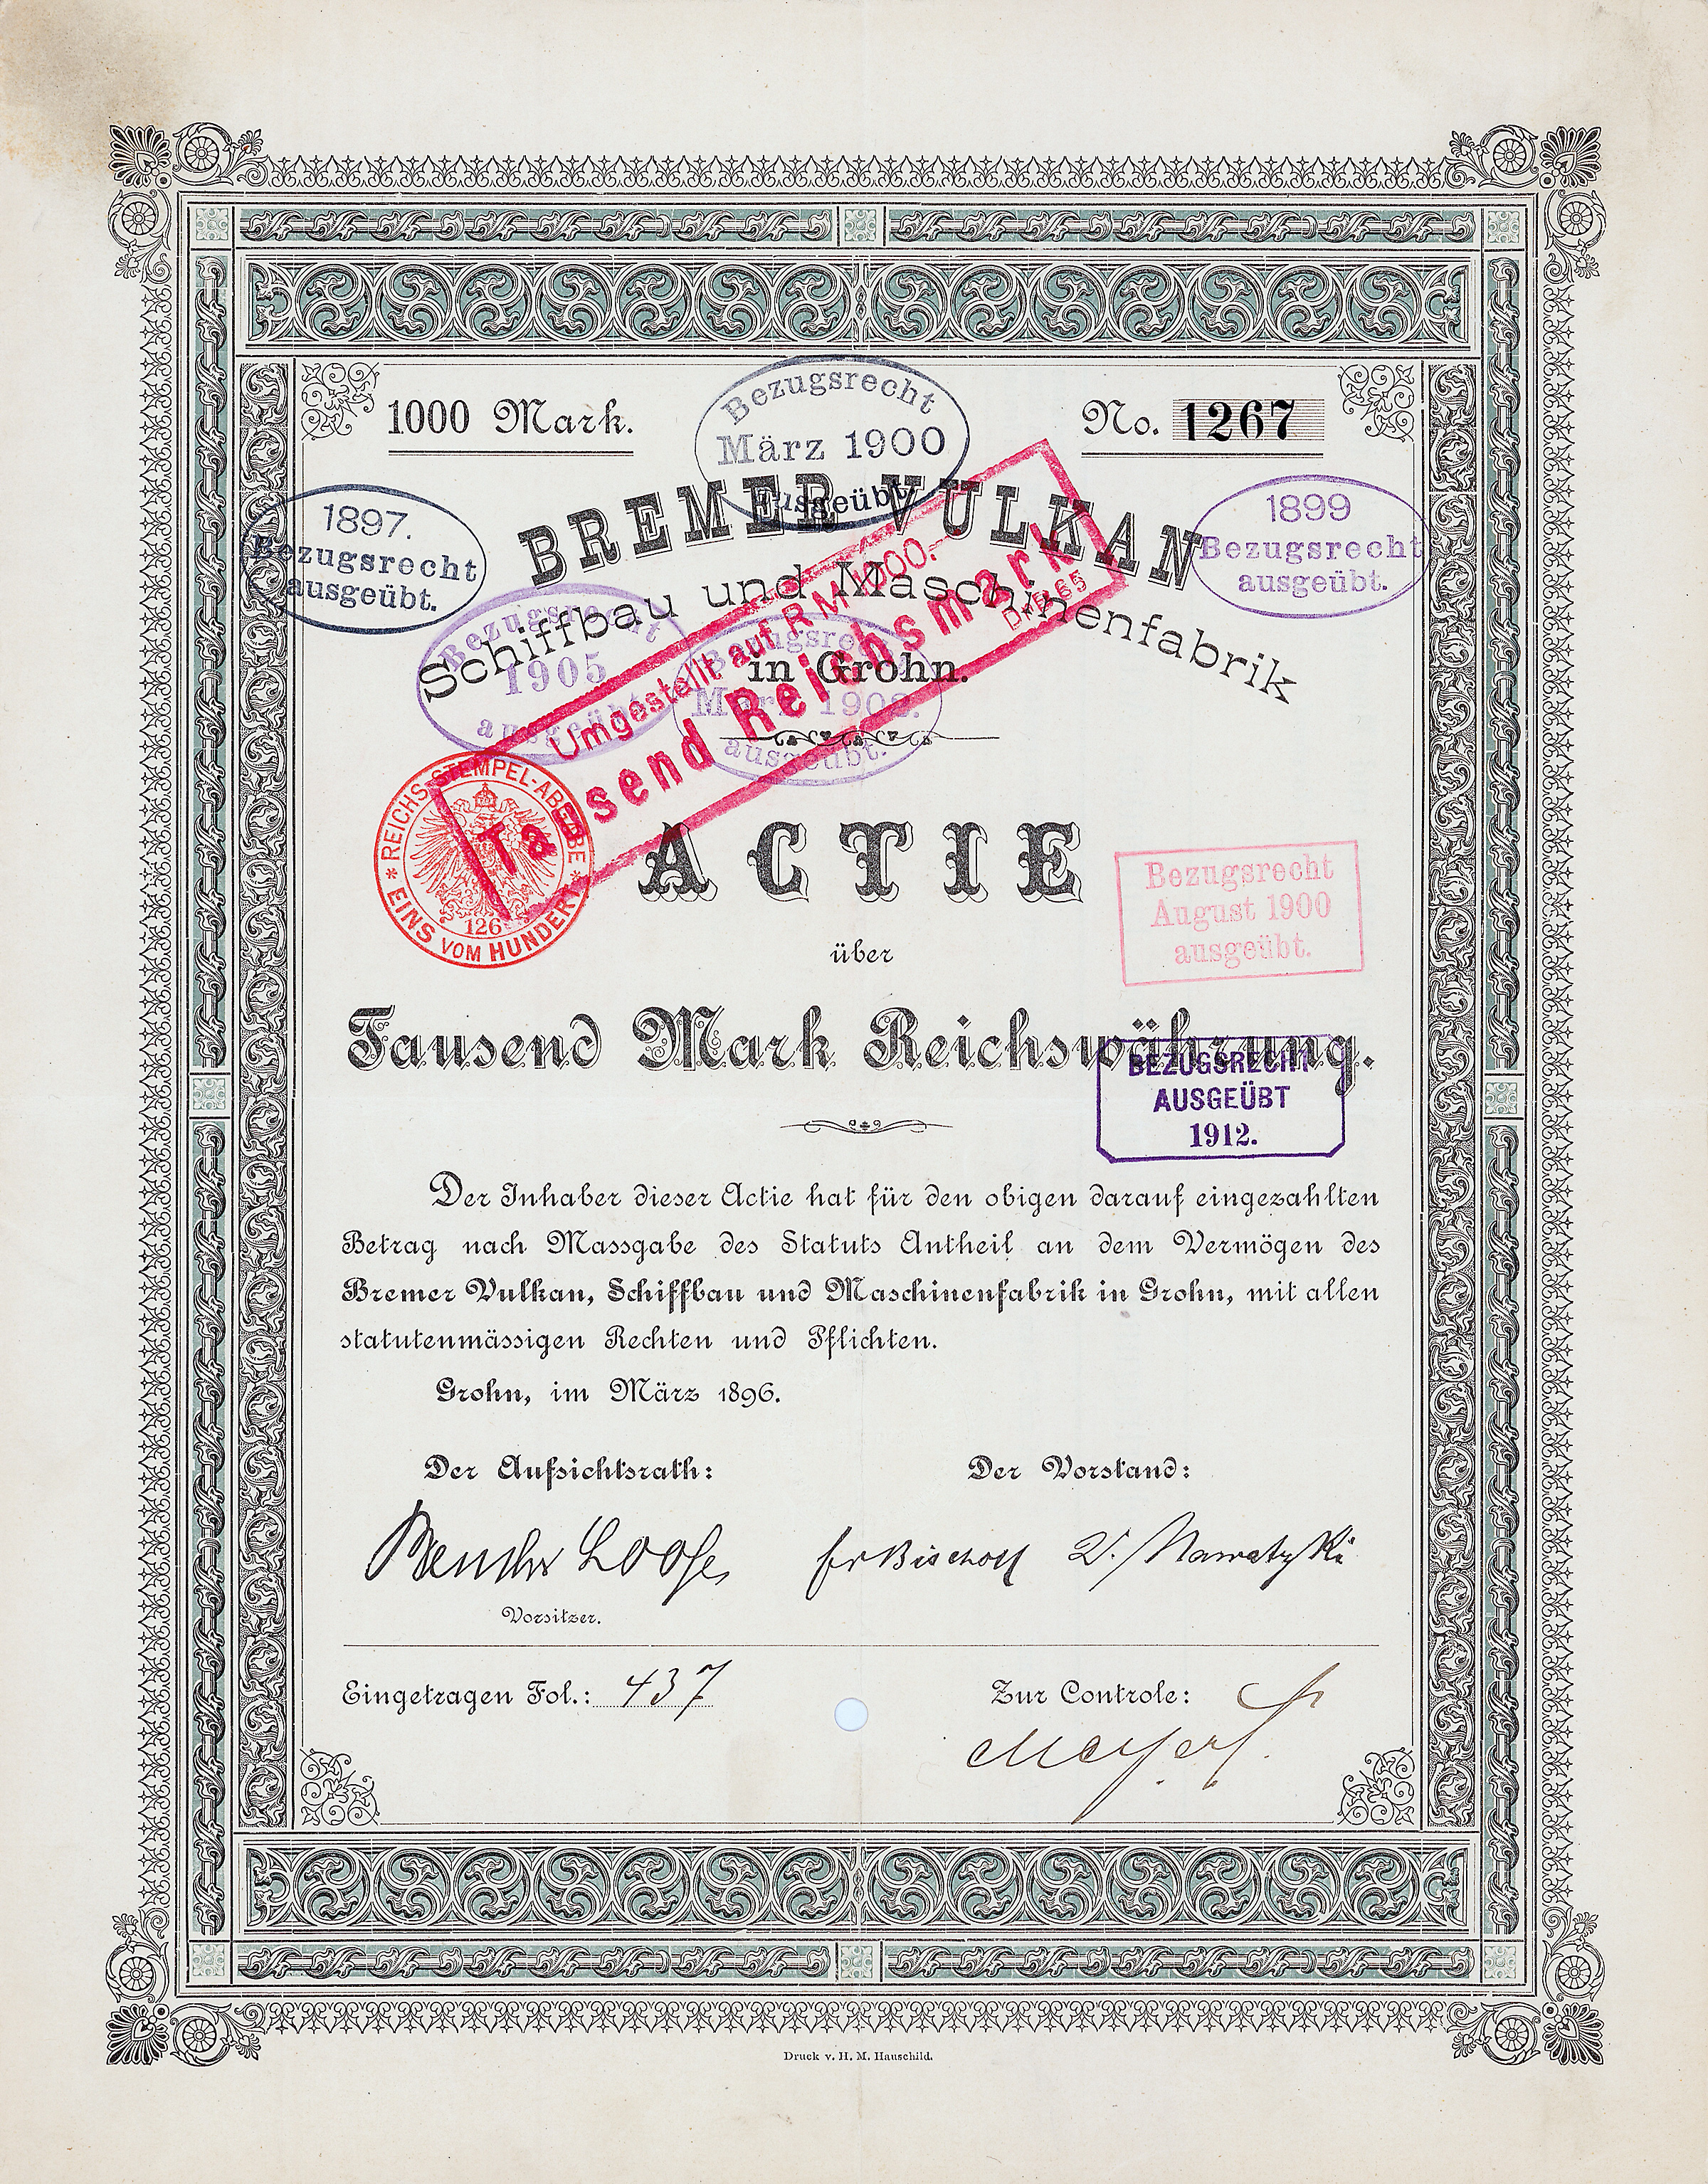 1000 Mark.
No. 1267
Bezugsrecht
März 1900
ausgeübt
1897.
Bezugsrecht
ausgeübt.
1899
Bezugsrecht
ausgeübt.
BREMER VULKAN
Schiffbau und Maschinenfabrik
in Grohn.
Bezugsrecht
1905
ausgeübt
Bezugsrecht
März
ausgeübt.
Umgestellt auf RM 1000.-
Tausend Reichsmark
REICHSSTEMPEL-ABGABE
EINS VOM HUNDERT
126
ACTIE
Bezugsrecht
August 1900
ausgeübt.
über
Tausend Mark Reichswährung.
BEZUGSRECHT
AUSGEÜBT
1912.
Der Inhaber dieser Actie hat für den obigen darauf eingezahlten
Betrag nach Massgabe des Statuts Antheil an dem Vermögen des
Bremer Vulkan, Schiffbau und Maschinenfabrik in Grohn, mit allen
statutenmässigen Rechten und Pflichten.
Grohn, im März 1896.
Der Aufsichtsrath:
Der Vorstand:
Loose
Fr Bischoff V. Nawatzki
Vorsitzer.
Eingetragen Fol.: 437
Zur Controle:
Druck v. H. M. Hauschild.